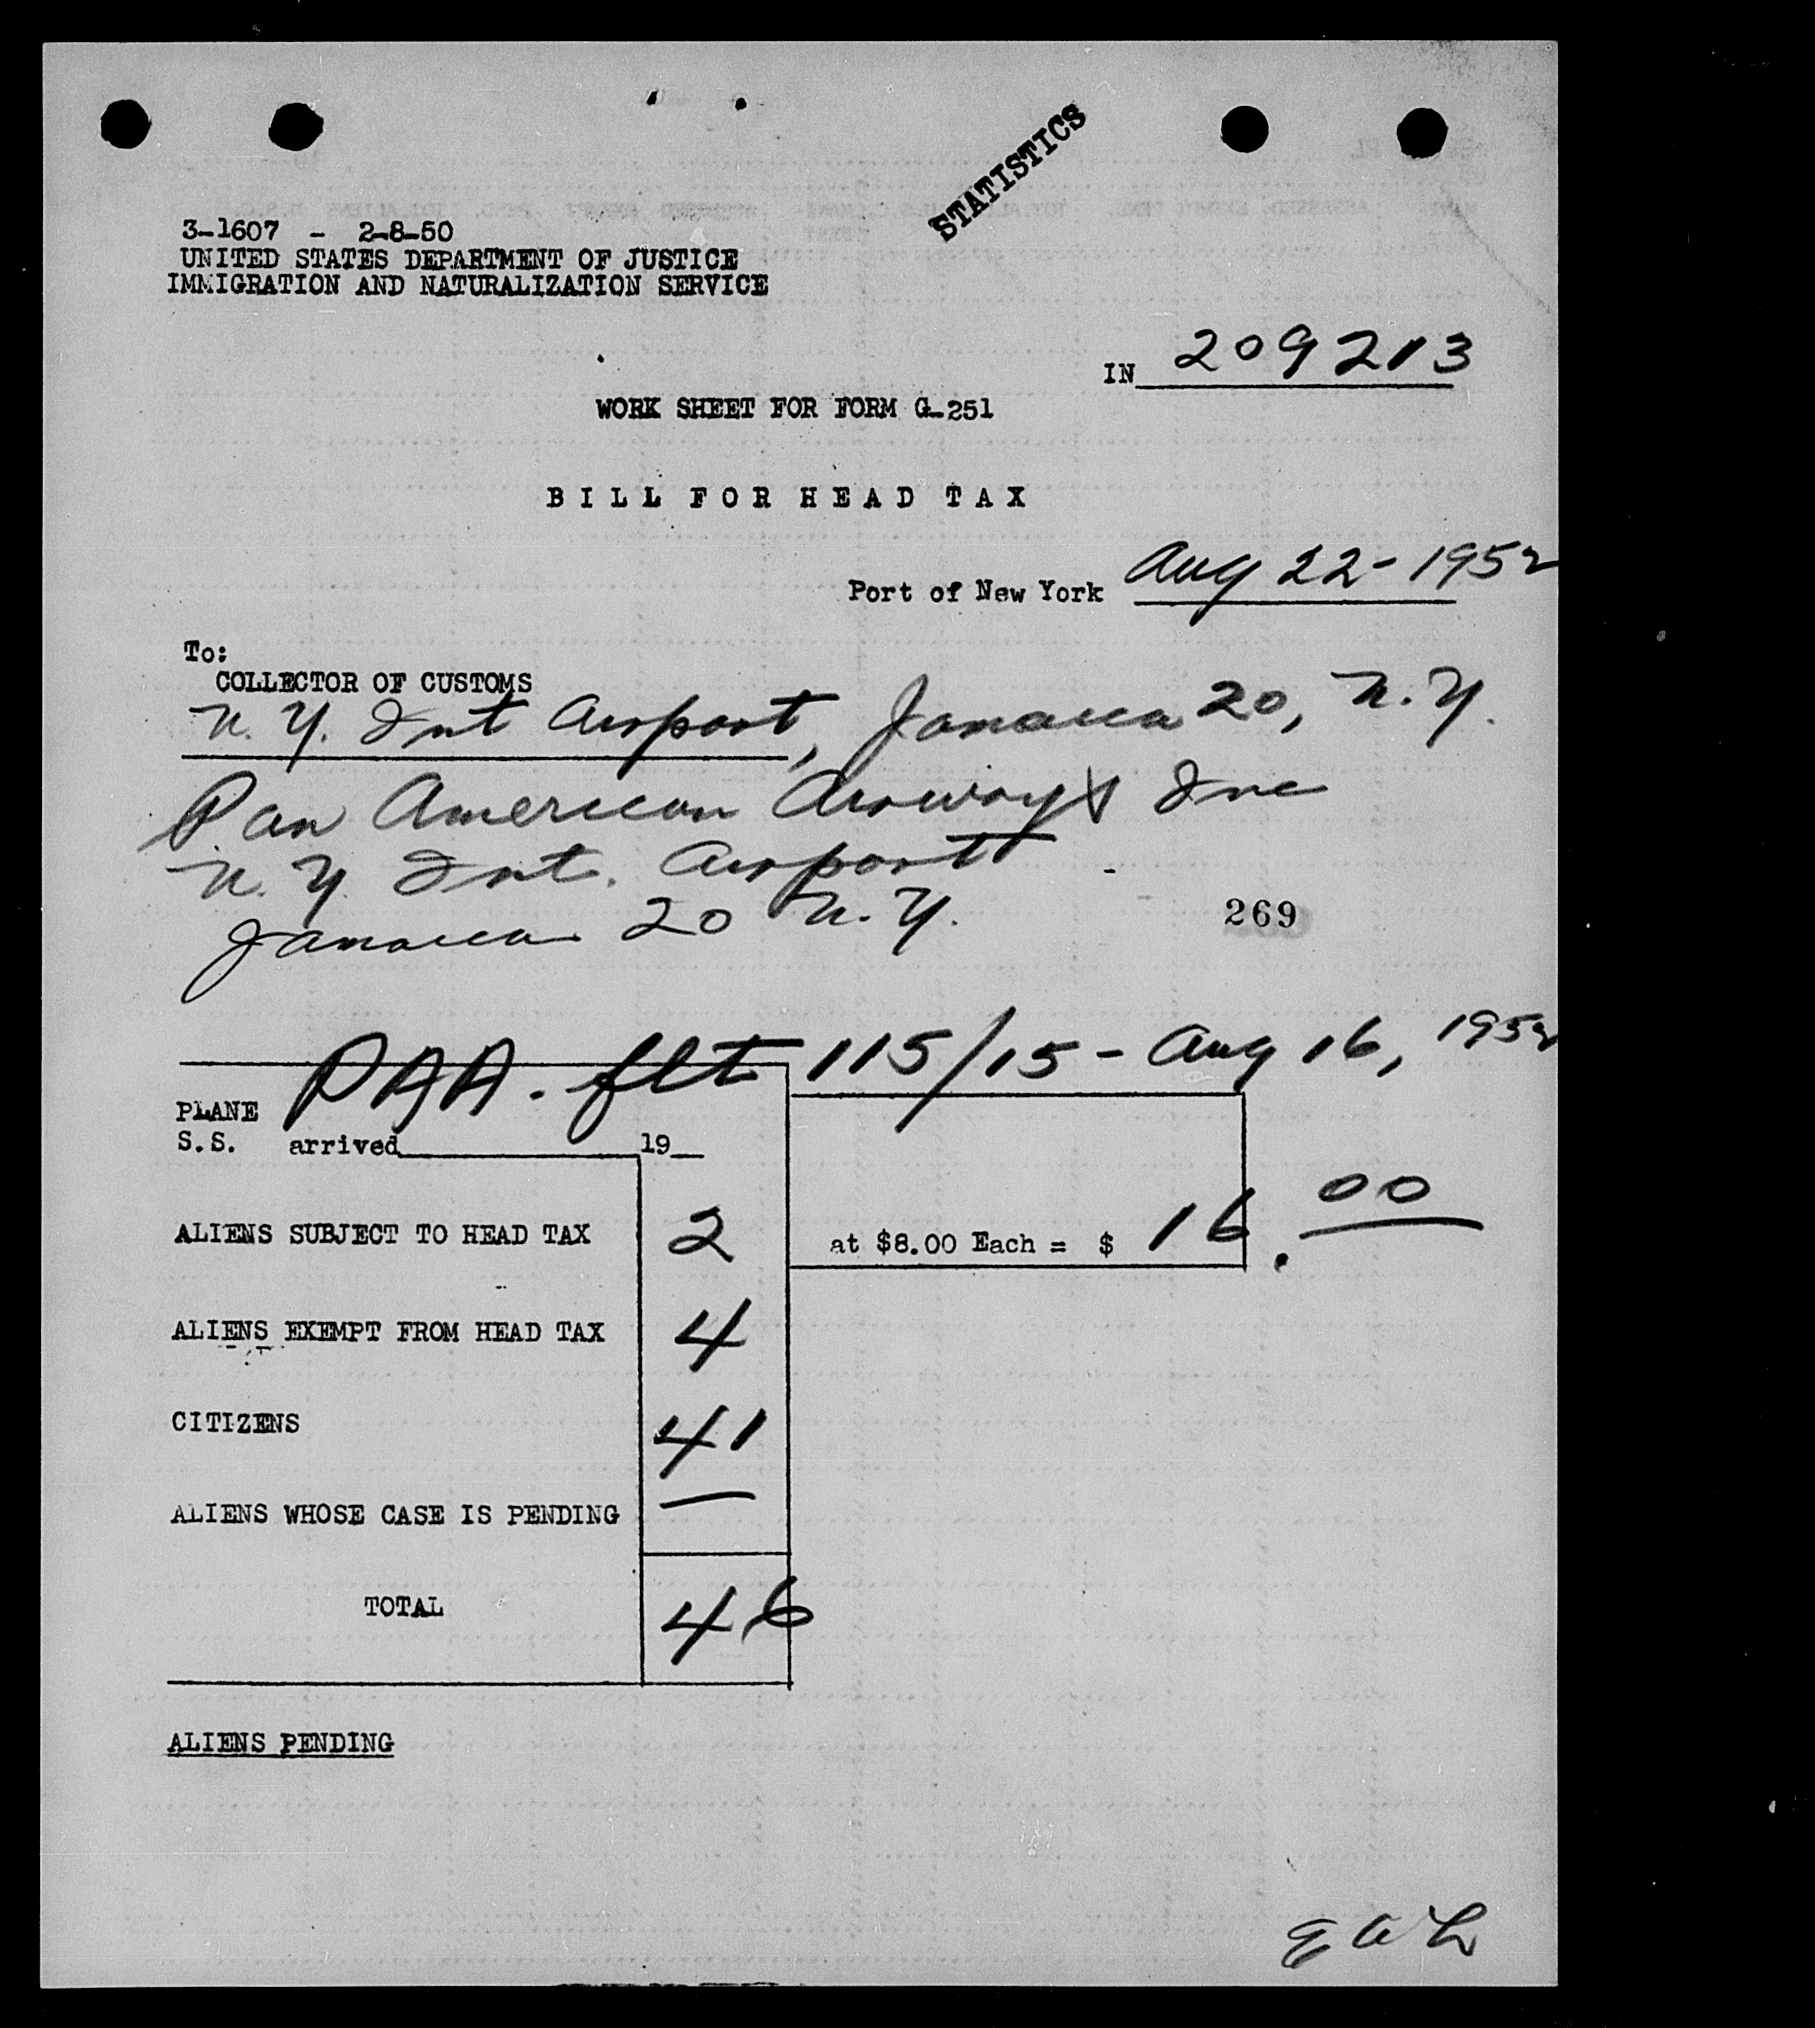 STATISTICS
3-1607 - 2-8-50
UNITED STATES DEPARTMENT OF JUSTICE
IMMIGRATION AND NATURALIZATION SERVICE
IN 209213
WORK SHEET FOR FORM G-251
BILL FOR HEAD TAX
Port of New York Aug 22-1952
To:
COLLECTOR OF CUSTOMS
N.Y. Int Airport, Jamaica 20, N.Y.
Pan American Airways Inc
N.Y. Int. Airport
Jamaica 20 N.Y.
269
PAA. flt 115/15 - Aug 16, 1952
PLANE
S.S. arrived 19
ALIENS SUBJECT TO HEAD TAX 2 at $8.00 Each = $ 16.00
ALIENS EXEMPT FROM HEAD TAX 4
CITIZENS 41
ALIENS WHOSE CASE IS PENDING —
TOTAL 46
ALIENS PENDING